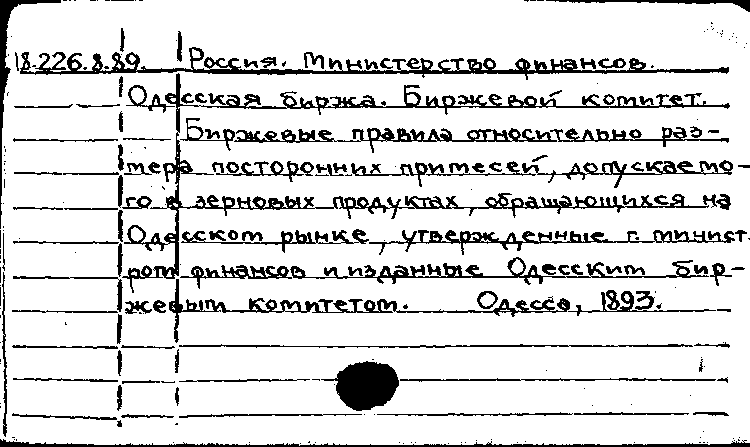 18.226.8.89. Россия. Министерство финансов.
Одесская биржа. Биржевой комитет.
Биржевые правила относительно раз-
мера посторонних примесей, допускаемо-
го в зерновых продуктах, обращающихся на
Одесском рынке, утвержденные г. минист-
ром финансов и изданные Одесским бир-
жевым комитетом. Одесса, 1893.